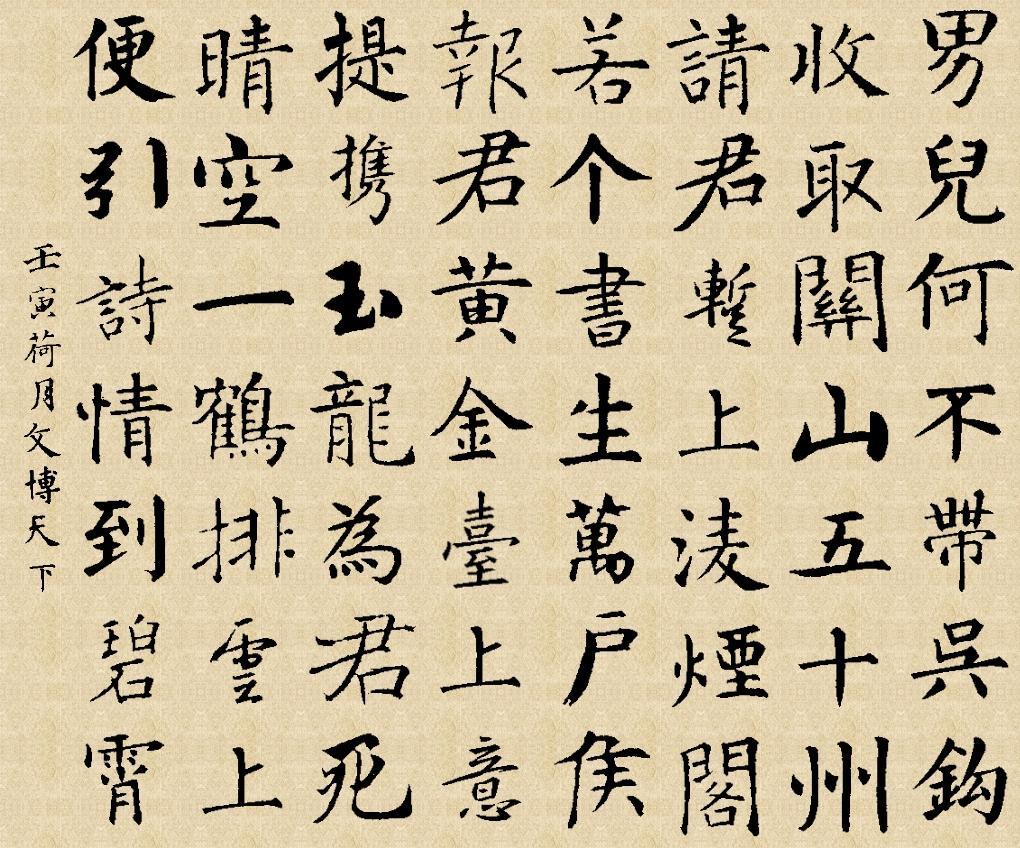 男兒何不帶吳鈎
收取關山五十州
請君暫上凌煙閣
若个書生萬戶侯
報君黃金臺上意
提携玉龍為君死
晴空一鶴排雲上
便引詩情到碧霄
壬寅荷月文博天下